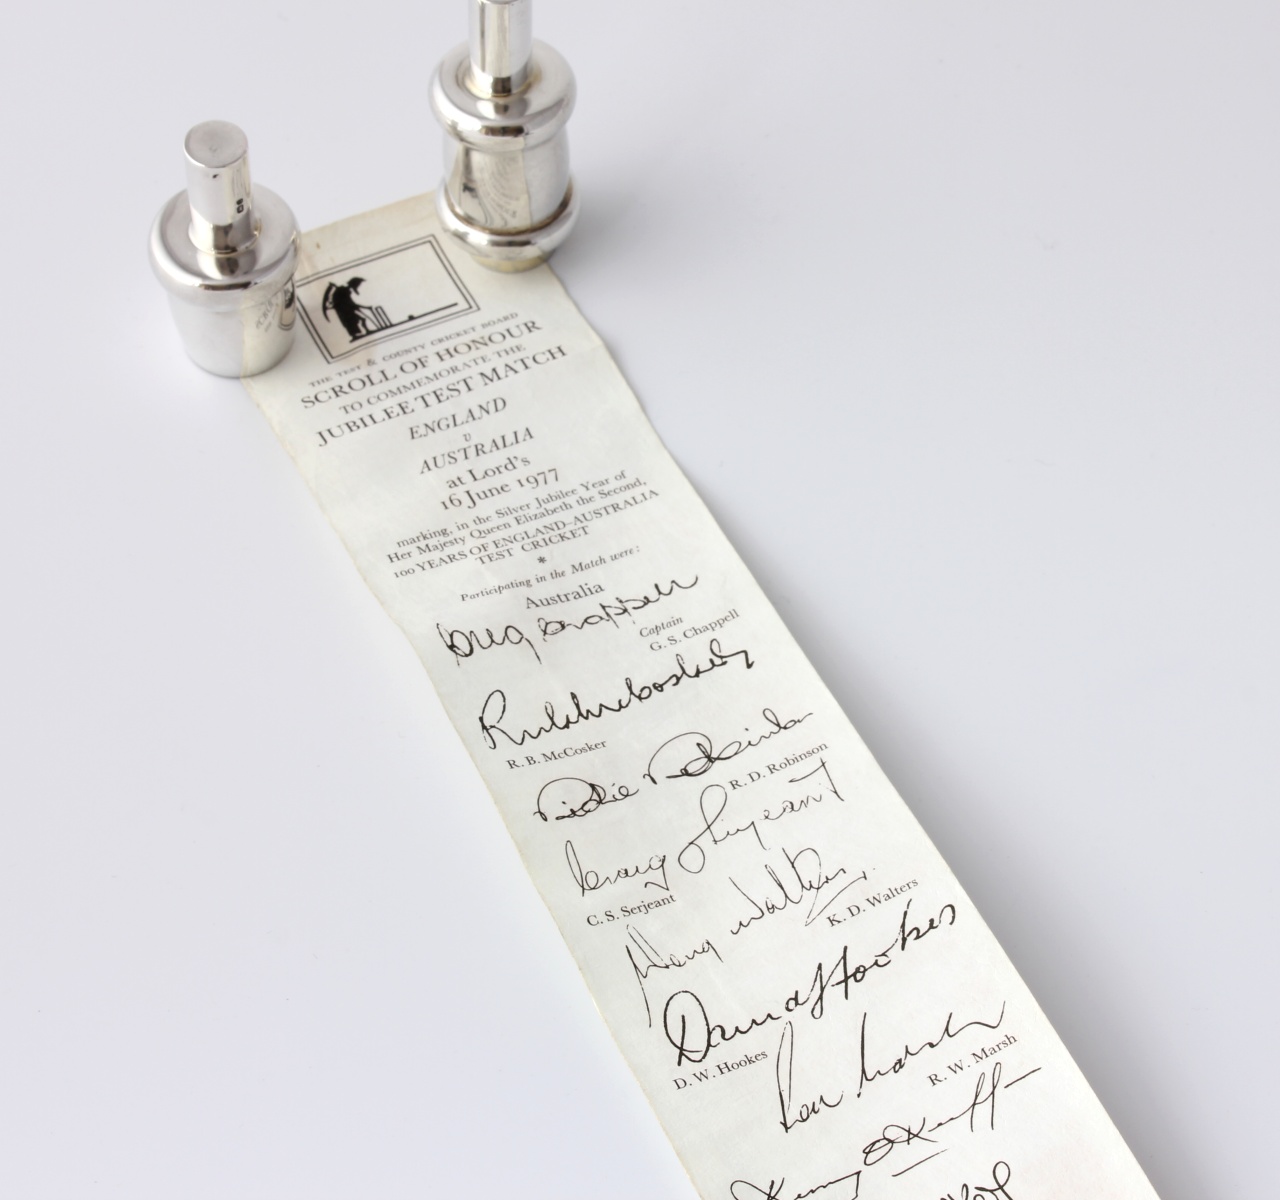 THE TEST & COUNTY CRICKET BOARD
SCROLL OF HONOUR
TO COMMEMORATE THE
JUBILEE TEST MATCH
ENGLAND
v
AUSTRALIA
at Lord's
16 June 1977
marking, in the Silver Jubilee Year of
Her Majesty Queen Elizabeth the Second,
100 YEARS OF ENGLAND–AUSTRALIA
TEST CRICKET
*
Participating in the Match were:
Australia
Greg Chappell
Captain
G. S. Chappell
Rick McCosker
R. B. McCosker
Richie Robinson
R. D. Robinson
Craig Serjeant
C. S. Serjeant
Doug Walters
K. D. Walters
David Hookes
D. W. Hookes
Rod Marsh
R. W. Marsh
Kerry O'Keeffe